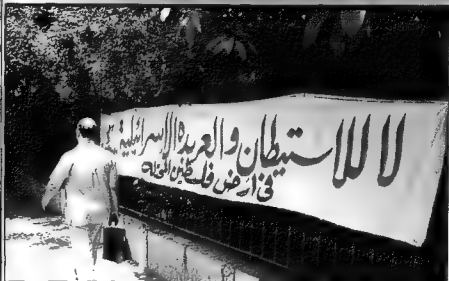 لا للاستيطان والعربدة الإسرائيلية
في أرض فلسطين المحتلة